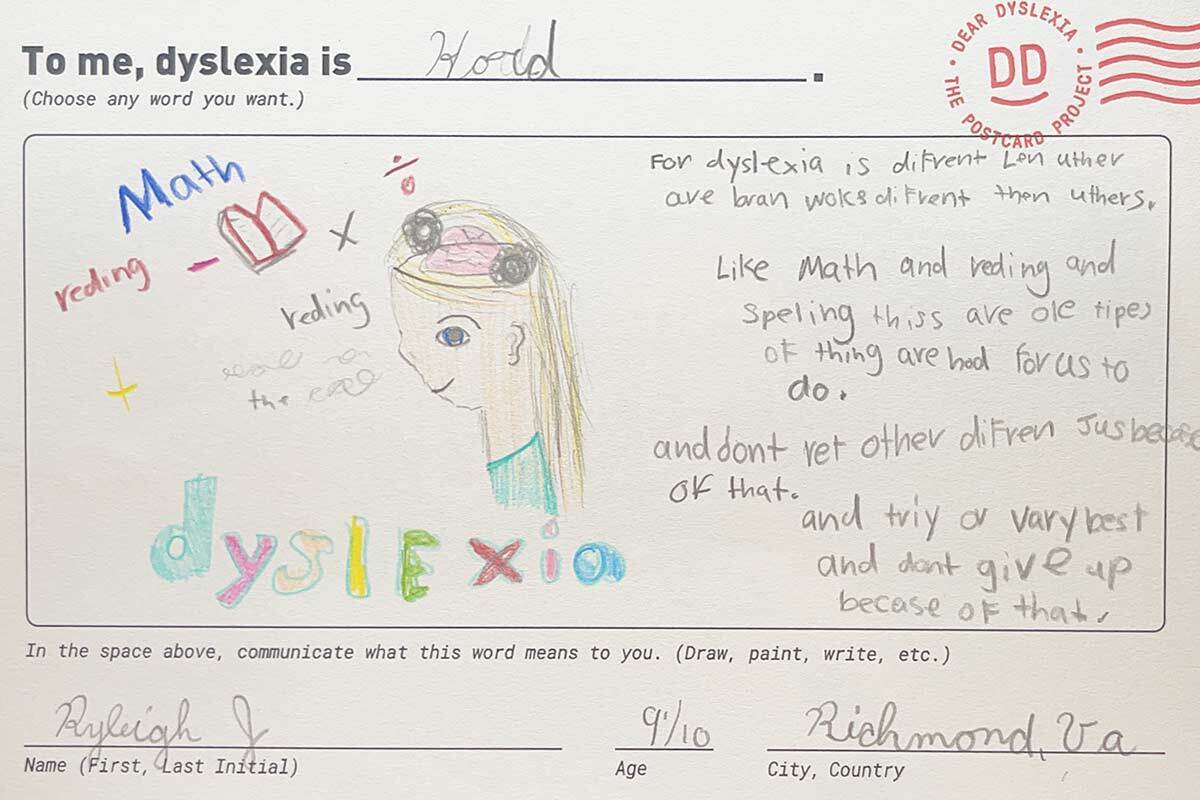 To me, dyslexia is Horld.
(Choose any word you want.)
DEAR DYSLEXIA
DD
THE POSTCARD PROJECT
Math
reding
reding
the
dyslExia
For dyslexia is difrent Len uther
are bran woks difrent then uthers.
Like Math and reding and
speling thiss are ole tipes
of thing are had for us to
do.
and dont ret other difren Jus because
of that.
and triy or vary best
and dont give up
becase of that.
In the space above, communicate what this word means to you. (Draw, paint, write, etc.)
Ryleigh J
Name (First, Last Initial)
9/10
Age
Richmond, Va
City, Country